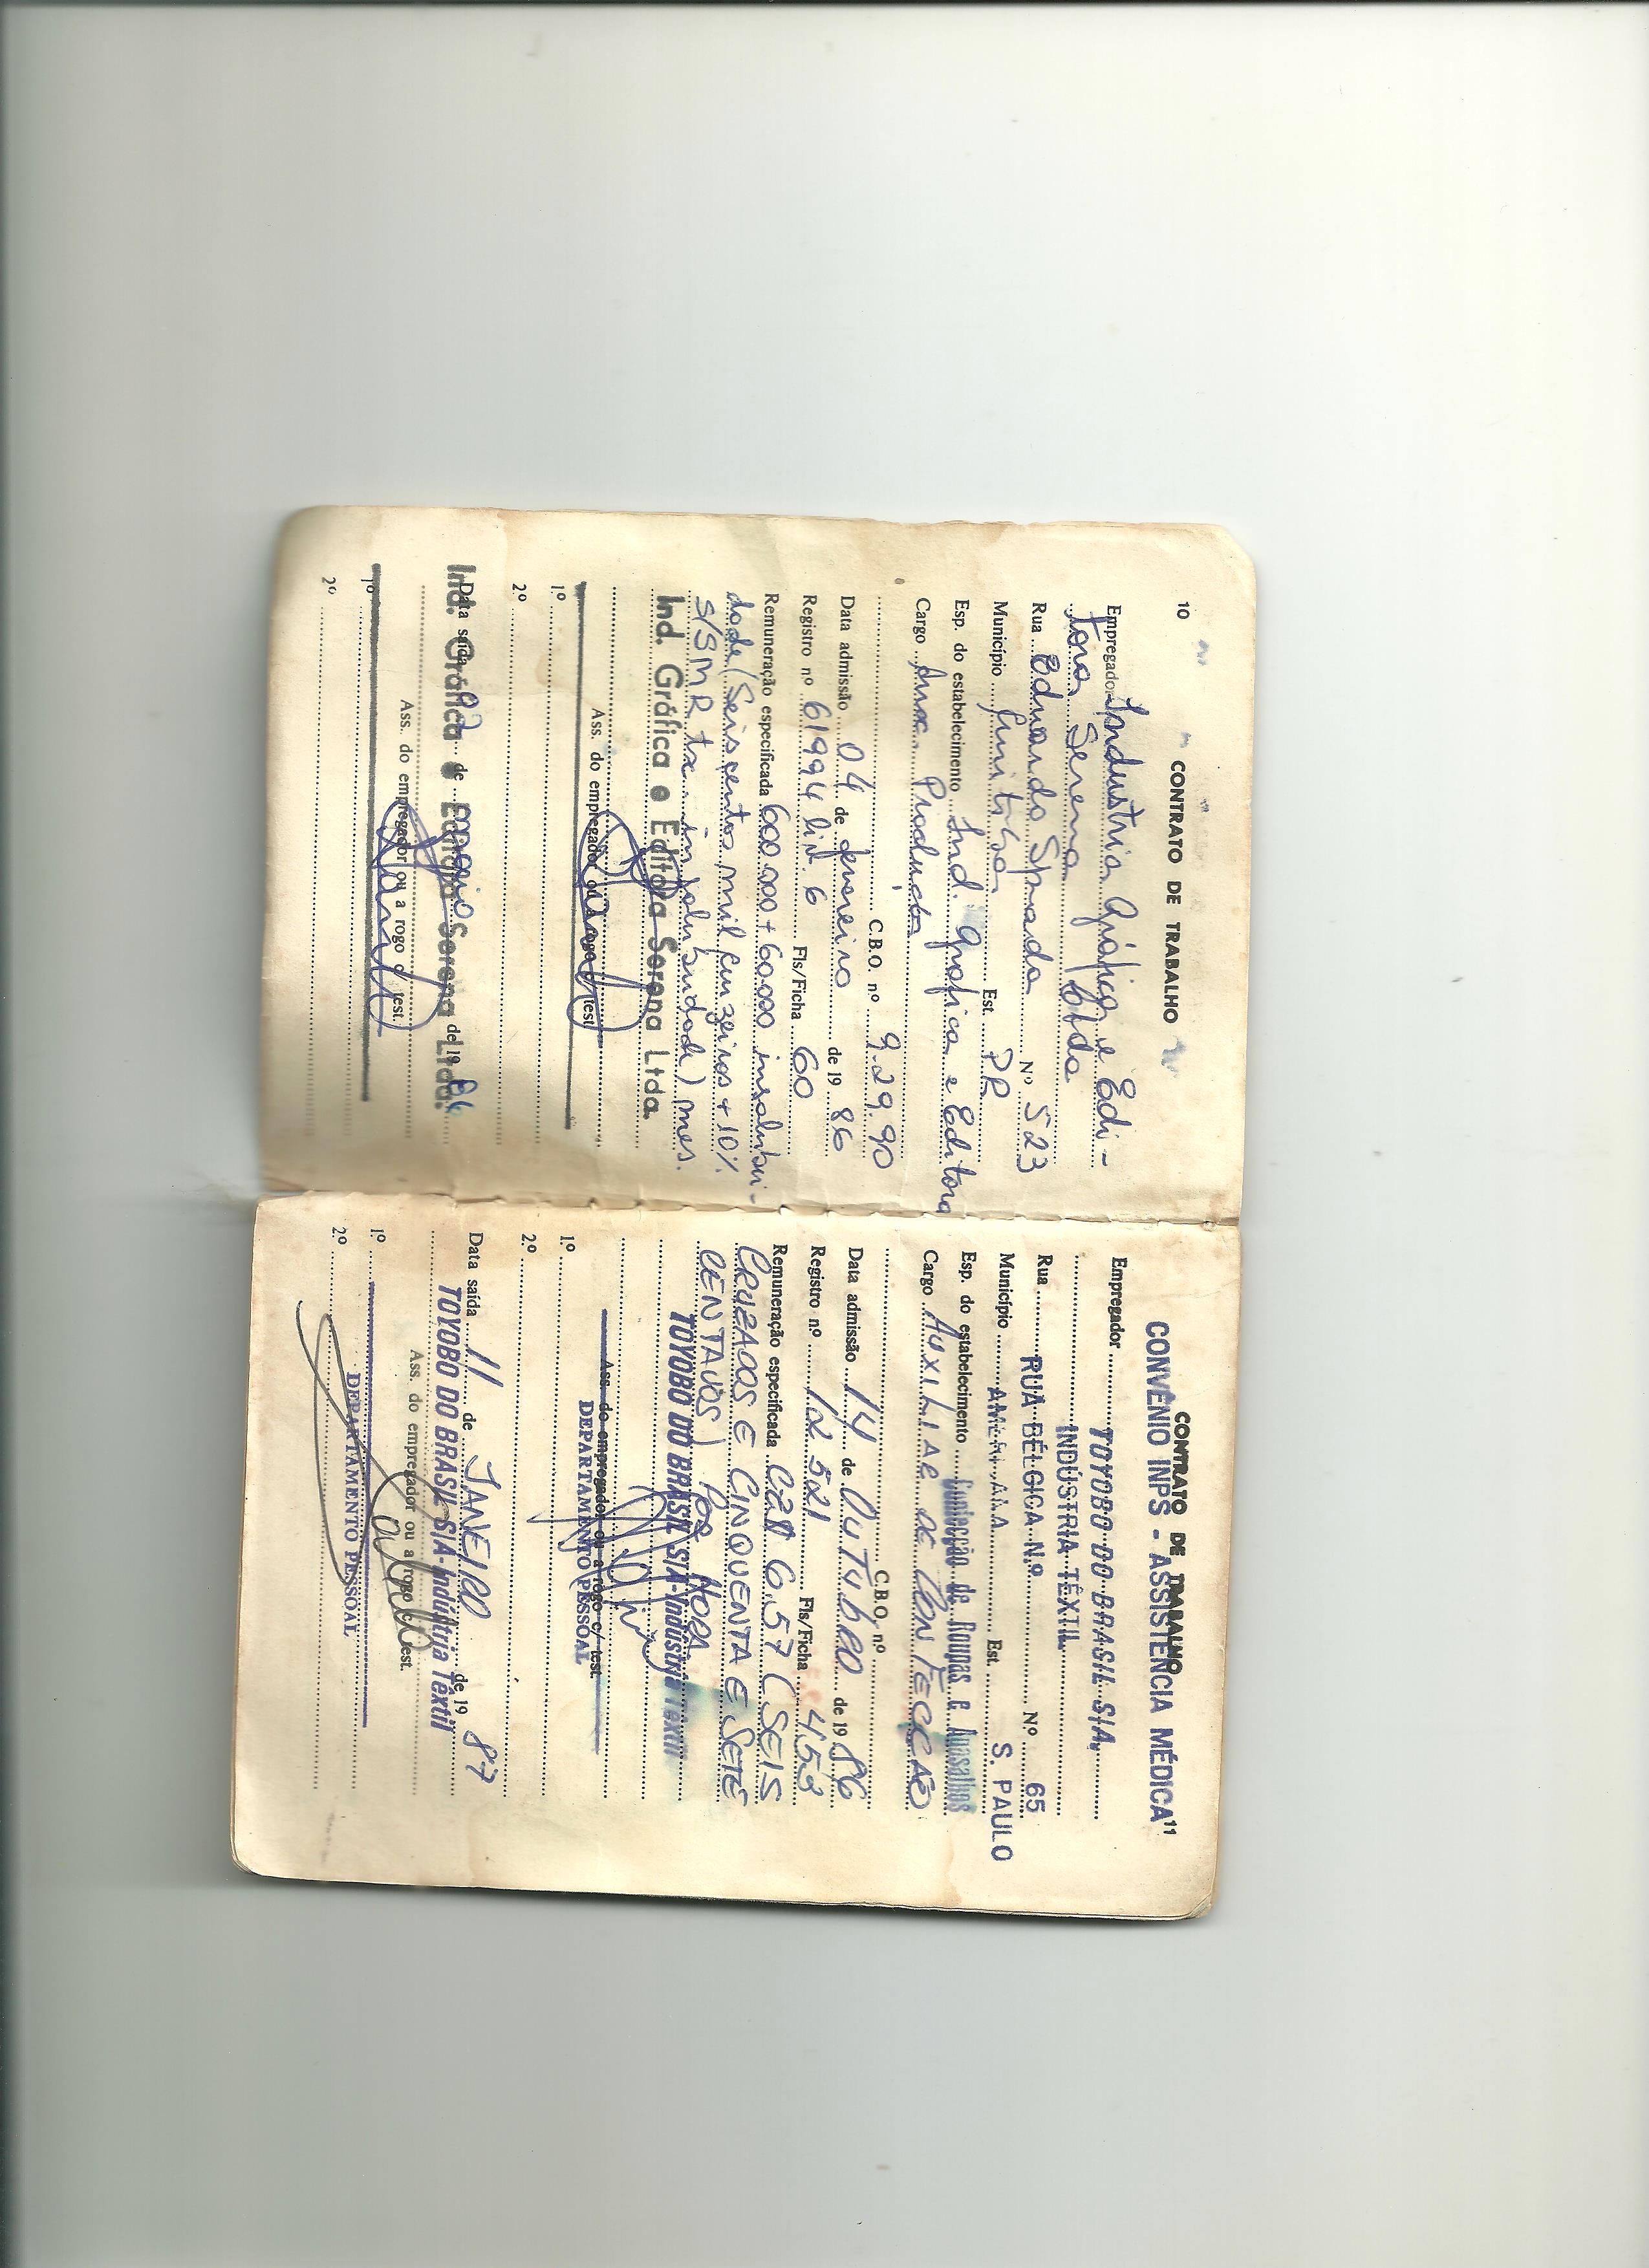 10
CONTRATO DE TRABALHO
Empregador Industria Gráfica e Edi-
tora Serena Ltda
Rua Eduardo Sprada Nº 523
Município Curitiba Est. PR
Esp. do estabelecimento Ind. Grafica e Editora
Cargo Aux. Producão
C.B.O. nº 9.29.90
Data admissão 04 de fevereiro de 19 86
Registro nº 61994 liv. 6 Fls/Ficha 60
Remuneração especificada 600.000 + 60.000 insalubri-
dade (Seiscentos mil cruzeiros + 10%
S/SMR tx. insalubridade) mes.
Ind. Gráfica e Editora Serena Ltda.
Ass. do empregador ou a rogo c/ test.
1º
2º
Data saída de maio de 19 86
Ind. Gráfica e Editora Serena Ltda.
Ass. do empregador ou a rogo c/ test.
1º
2º
11
CONTRATO DE TRABALHO
CONVÊNIO INPS - ASSISTÊNCIA MÉDICA
Empregador TOYOBO DO BRASIL S/A.
INDÚSTRIA TÊXTIL
Rua RUA BÉLGICA N.º Nº 65
Município AMERICANA Est. S. PAULO
Esp. do estabelecimento Confecção de Roupas e Agasalhos
Cargo AUXILIAR DE CONFECCÃO
C.B.O. nº
Data admissão 14 de OUTUBRO de 19 86
Registro nº 12521 Fls/Ficha 453
Remuneração especificada CZ$ 6,57 (SEIS
CRUZADOS E CINQUENTA E SETE
CENTAVOS) POR HORA
TOYOBO DO BRASIL S/A-Indústria Têxtil
Ass. do empregador ou a rogo c/ test.
DEPARTAMENTO PESSOAL
1º
2º
Data saída 11 de JANEIRO de 19 87
TOYOBO DO BRASIL S/A-Indústria Têxtil
Ass. do empregador ou a rogo c/ test.
1º
DEPARTAMENTO PESSOAL
2º